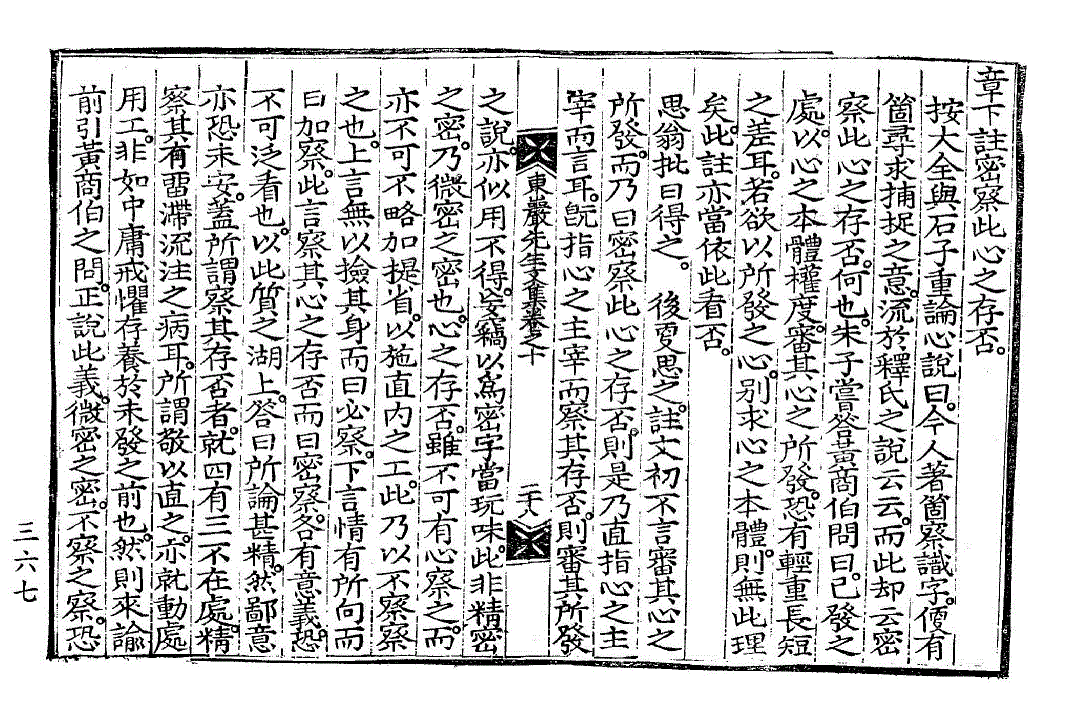 章下註密察此心之存否。
按大全與石子重論心說曰。今人著箇察識字。便有
箇尋求捕捉之意。流於釋氏之說云云。而此却云密
察此心之存否。何也。朱子嘗答黃商伯問曰。已發之
處。以心之本體權度。審其心之所發。恐有輕重長短
之差耳。若欲以所發之心。別求心之本體。則無此理
矣。此註亦當依此看否。
思翁批曰得之。 後更思之。註文初不言審其心之
所發。而乃曰密察此心之存否。則是乃直指心之主
宰而言耳。旣指心之主宰而察其存否。則審其所發
東巖先生文集卷之十
二十八
之說。亦似用不得。妄竊以爲密字當玩味。此非精密
之密。乃微密之密也。心之存否。雖不可有心察之。而
亦不可不略加提省。以施直內之工。此乃以不察察
之也。上言無以撿其身而曰必察。下言情有所向而
曰加察。此言察其心之存否而曰密察。各有意義。恐
不可泛看也。以此質之湖上。答曰所論甚精。然鄙意
亦恐未安。蓋所謂察其存否者。就四有三不在處。精
察其有畱滯流注之病耳。所謂敬以直之。亦就動處
用工。非如中庸戒懼存養於未發之前也。然則來諭
前引黃商伯之問。正說此義。微密之密。不察之察。恐
三六七